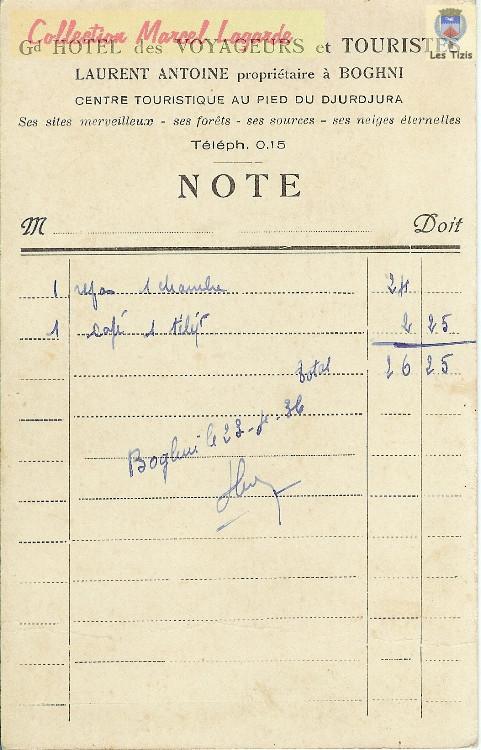 Collection Marcel Lagarde
Gd HOTEL des VOYAGEURS et TOURISTES
Les Tizis
LAURENT ANTOINE propriétaire à BOGHNI
CENTRE TOURISTIQUE AU PIED DU DJURDJURA
Ses sites merveilleux - ses forêts - ses sources - ses neiges éternelles
Téléph. 0.15
NOTE
M Doit
1 repas 1 chambre 24
1 café 1 télé 2 25
Total 26 25
Boghni le 23 36